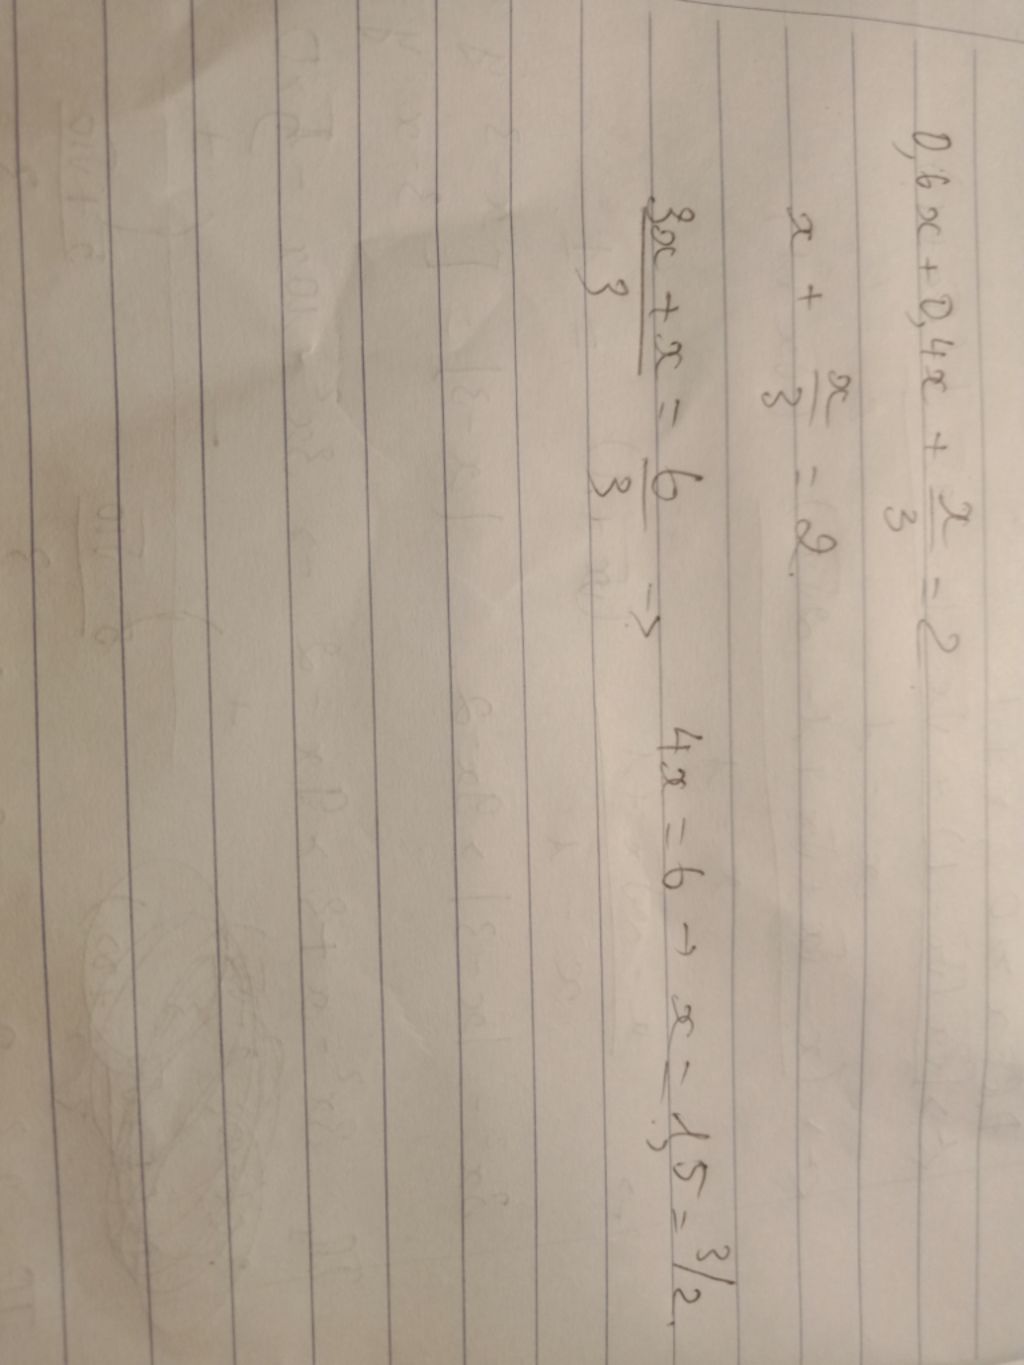 0,6x + 0,4x + x/3 = 2
x + x/3 = 2
(3x + x)/3 = 6/3 → 4x = 6 → x = 1,5 = 3/2.